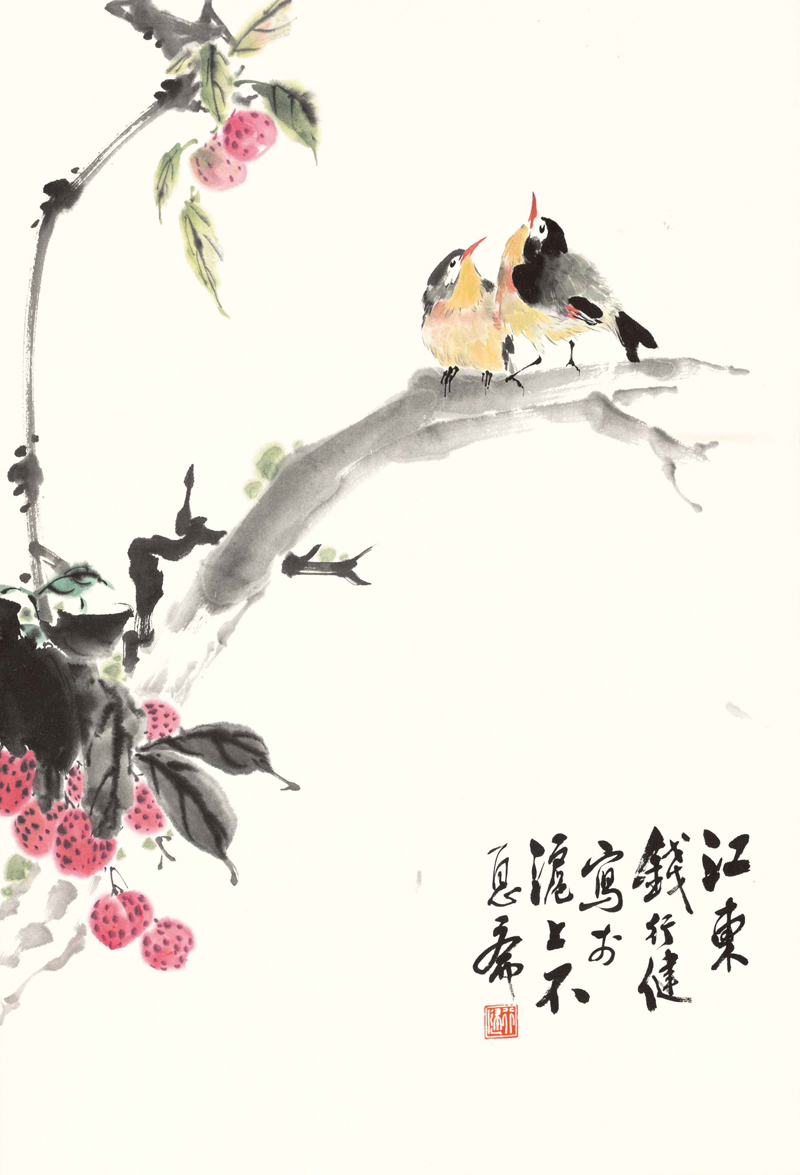 江東
錢行健
寫於
滬上不
息齋
行健